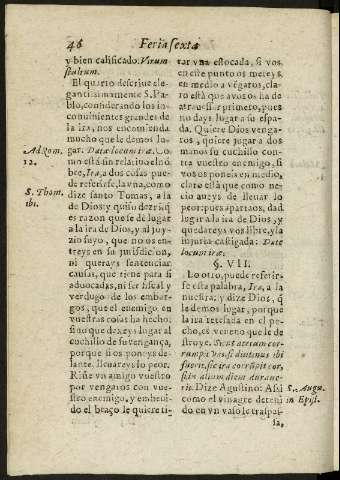 46 Feria sexta
y bien calificado. Virum
stultum.
El quarto descriue ele-
gantissimamente S. Pa-
blo, considerando los in-
conuinientes grandes de
la ira, nos encomienda
mucho que le demos lu-
gar. Date locum iræ. Co-
mo està sin relatiuo el nō
bre, Ira, a dos cosas pue-
de referirse, la vna, como
dize santo Tomas, a la
de Dios: y quiso dezir q̃
es razon que se dè lugar
a la ira de Dios, y al juy-
zio suyo, que no os en-
treys en su jurisdicion,
ni querays sentenciar
causas, que tiene para si
aduocadas, ni ser fiscal y
verdugo de los embar-
gos, que el enemigo en
vuestras cosas ha hecho:
sino que dexeys lugar al
cuchillo de su vengança,
porque si os poneys de-
lante, lleuareys lo peor.
Riñe vn amigo vuestro
por vengaros con vue-
stro enemigo, y embeui-
do el braço le quiere ti-
Ad Rom.
12.
S. Thom.
ibi.
rar vna estocada, si vos
en este punto os meteys
en medio a vẽgaros, cla-
ro està que a vozos ha de
atrauessar primero, pues
no days lugar a su espa-
da. Quiere Dios venga-
ros, quiere jugar a dos
manos su cuchillo con-
tra vuestro enemigo, si
vos os poneis en medio,
claro està que como ne-
cio aueys de lleuar lo
peor: pues apartaos, dad
lugar a la ira de Dios, y
quedareys vos libre, y la
injuria castigada: Date
locum iræ.
§. VII.
Lo otro, puede referir-
se esta palabra, Iræ, a la
nuestra: y dize Dios, q̃
le demos lugar, porque
la ira retelada en el pe-
cho, es veneno que le de
stroye. Sicut acetum cor-
rumpit vas, si diutinus ibi
fuerit, sic ira corrūpit cor,
si in alium diem duraue-
rit. Dize Agustino: Assi
como el vinagre deteni
do en vn vaso le traspas-
sa,
S. Augu.
in Epist.